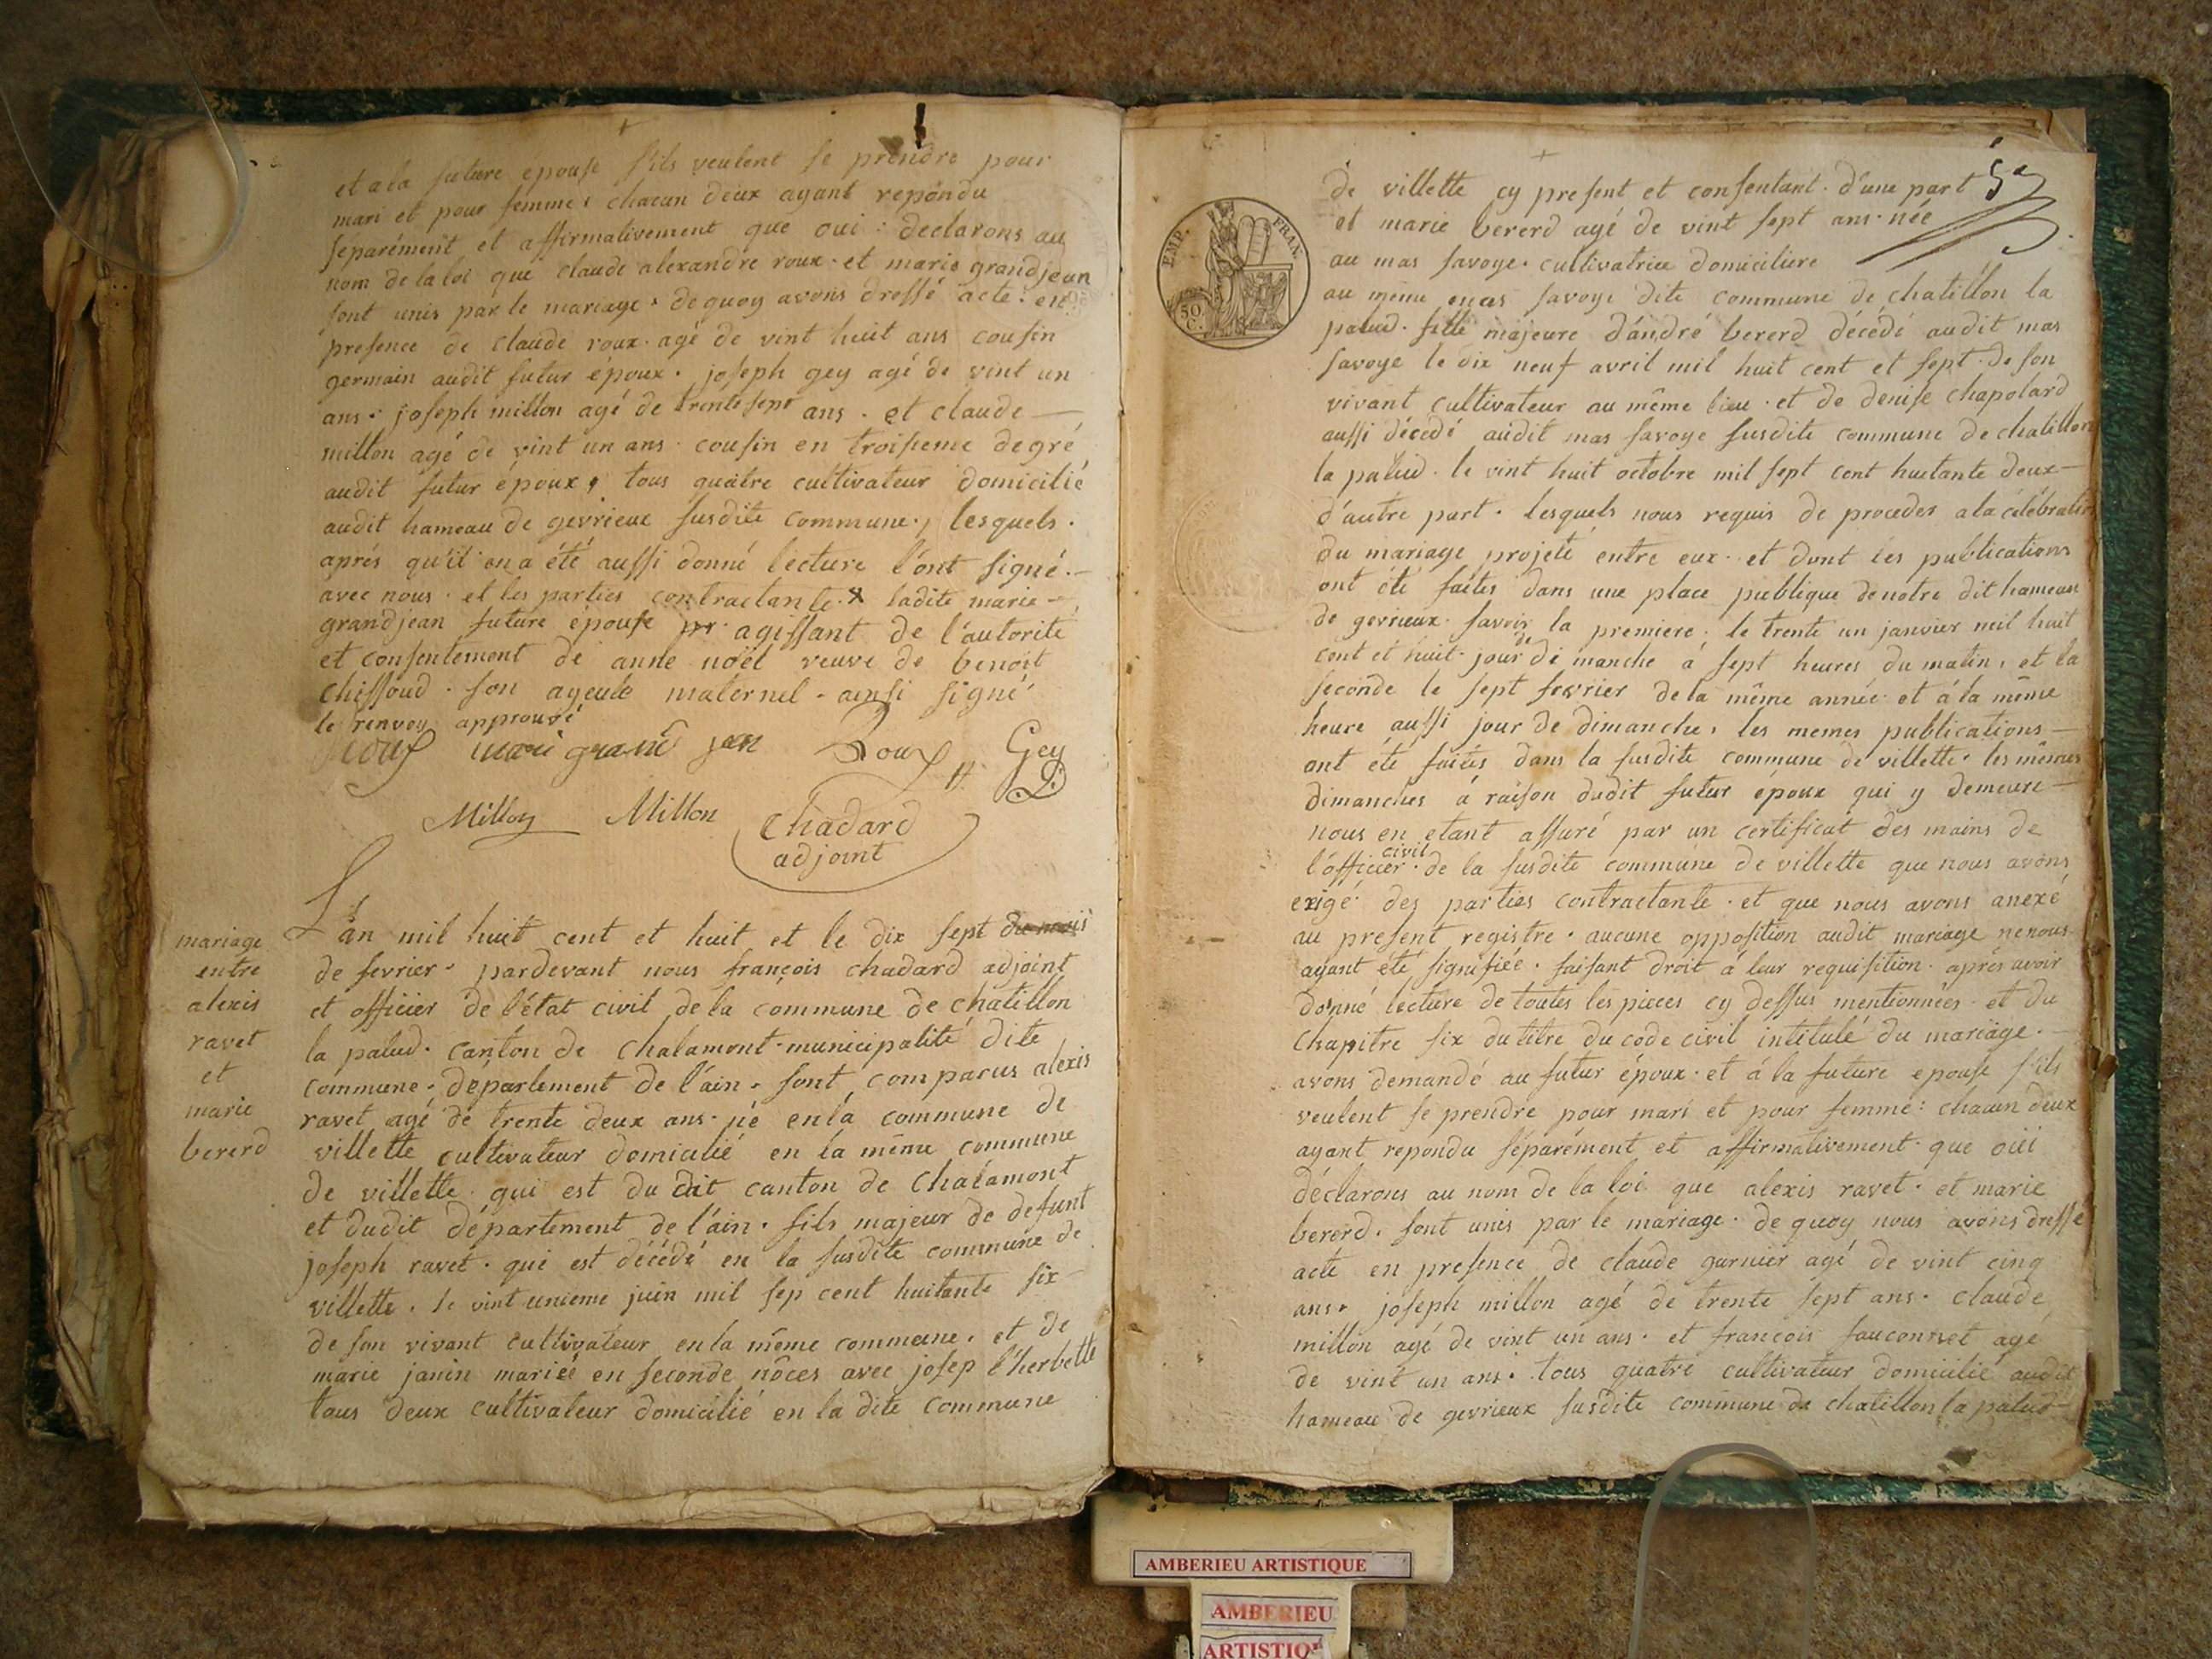 et a la future epouse s'ils veulent se prendre pour
mari et pour femme: chacun deux ayant repondu
separément et affirmativement que oui: declarons au
nom de la loi que claude alexandre roux. et marie grandjean
sont unis par le mariage. de quoy avons dressé acte: en
presence de claude roux. agé de vint huit ans cousin
germain audit futur époux. joseph gey agé de vint un
ans. joseph millon agé de trente sept ans. et claude
millon agé de vint un ans. cousin en troisieme degré
audit futur époux, tous quatre cultivateur domicilié
audit hameau de gevrieux susdite commune, lesquels.
aprés qu'il en a été aussi donné lecture l'ont signé.
avec nous. et les parties contractante. x ladite marie
grandjean future épouse agissant de l'autorite
et consentement de anne noël veuve de benoit
chiffoud. son ayeule maternel. ainsi signé
le renvoy approuvé
roux marie grand jan Roux Gey
Millon Millon Chadard
adjoint
mariage
entre
alexis
ravet
et
marie
bererd
L'an mil huit cent et huit et le dix sept du mois
de fevrier. pardevant nous françois chadard adjoint
et officier de l'état civil de la commune de chatillon
la palud. canton de chalamont. municipalité dite
commune. département de l'ain. sont comparus alexis
ravet agé de trente deux ans. né en la commune de
villette cultivateur domicilié en la même commune
de villette. qui est du dit canton de chalamont
et dudit département de l'ain. fils majeur de defunt
joseph ravet. qui est décédé en la susdite commune de
villette. le vint unieme juin mil sep cent huitante six
de son vivant cultivateur en la même commune. et de
marie janin mariée en seconde nôces avec josep l'herbette
tous deux cultivateur domicilié en la dite commune
EMP. FRAN.
50 C.
de villette cy present et consentant. d'une part
et marie bererd agé de vint sept ans. née
au mas savoye. cultivatrice domiciliere
au même mas savoye dite commune de chatillon la
palud. fille majeure d'andré bererd décédé audit mas
savoye le dix neuf avril mil huit cent et sept. de son
vivant cultivateur au même lieu. et de denise chapolard
aussi décédé audit mas savoye susdite commune de chatillon
la palud. le vint huit octobre mil sept cent huitante deux
d'autre part. lesquels nous requis de proceder a la célébration
du mariage projeté entre eux. et dont les publications
ont été faites dans une place publique de notre dit hameau
de gevrieux. savoir la premiere. le trente un janvier mil huit
cent et huit. jour de di manche á sept heures du matin, et la
seconde le sept fevrier de la même année et á la même
heure aussi jour de dimanche, les memes publications
ont été faites dans la susdite commune de villette. les mêmes
dimanches á raison dudit futur époux qui y demeure
nous en etant assuré par un certificat des mains de
l'officier civil. de la susdite commune de villette que nous avons
exigé des parties contractante. et que nous avons anexé
au present registre. aucune opposition audit mariage ne nous
ayant été signifiée. faisant droit á leur requisition. aprés avoir
donné lecture de toutes les pieces cy dessus mentionnées. et du
chapitre six du titre du code civil intitulé du mariage.
avons demandé au futur époux. et á la future epouse s'ils
veulent se prendre pour mari et pour femme: chacun deux
ayant repondu séparément et affirmativement. que oui
déclarons au nom de la loi que alexis ravet. et marie
bererd. sont unis par le mariage. de quoy nous avons dressé
acte en presence de claude garnier agé de vint cinq
ans. joseph millon agé de trente sept ans. claude
millon agé de vint un ans. et françois fauconnet agé
de vint un ans. tous quatre cultivateur domicilié audit
hameau de gevrieux susdite commune de chatillon la palud
AMBERIEU ARTISTIQUE
AMBERIEU
ARTISTIQU